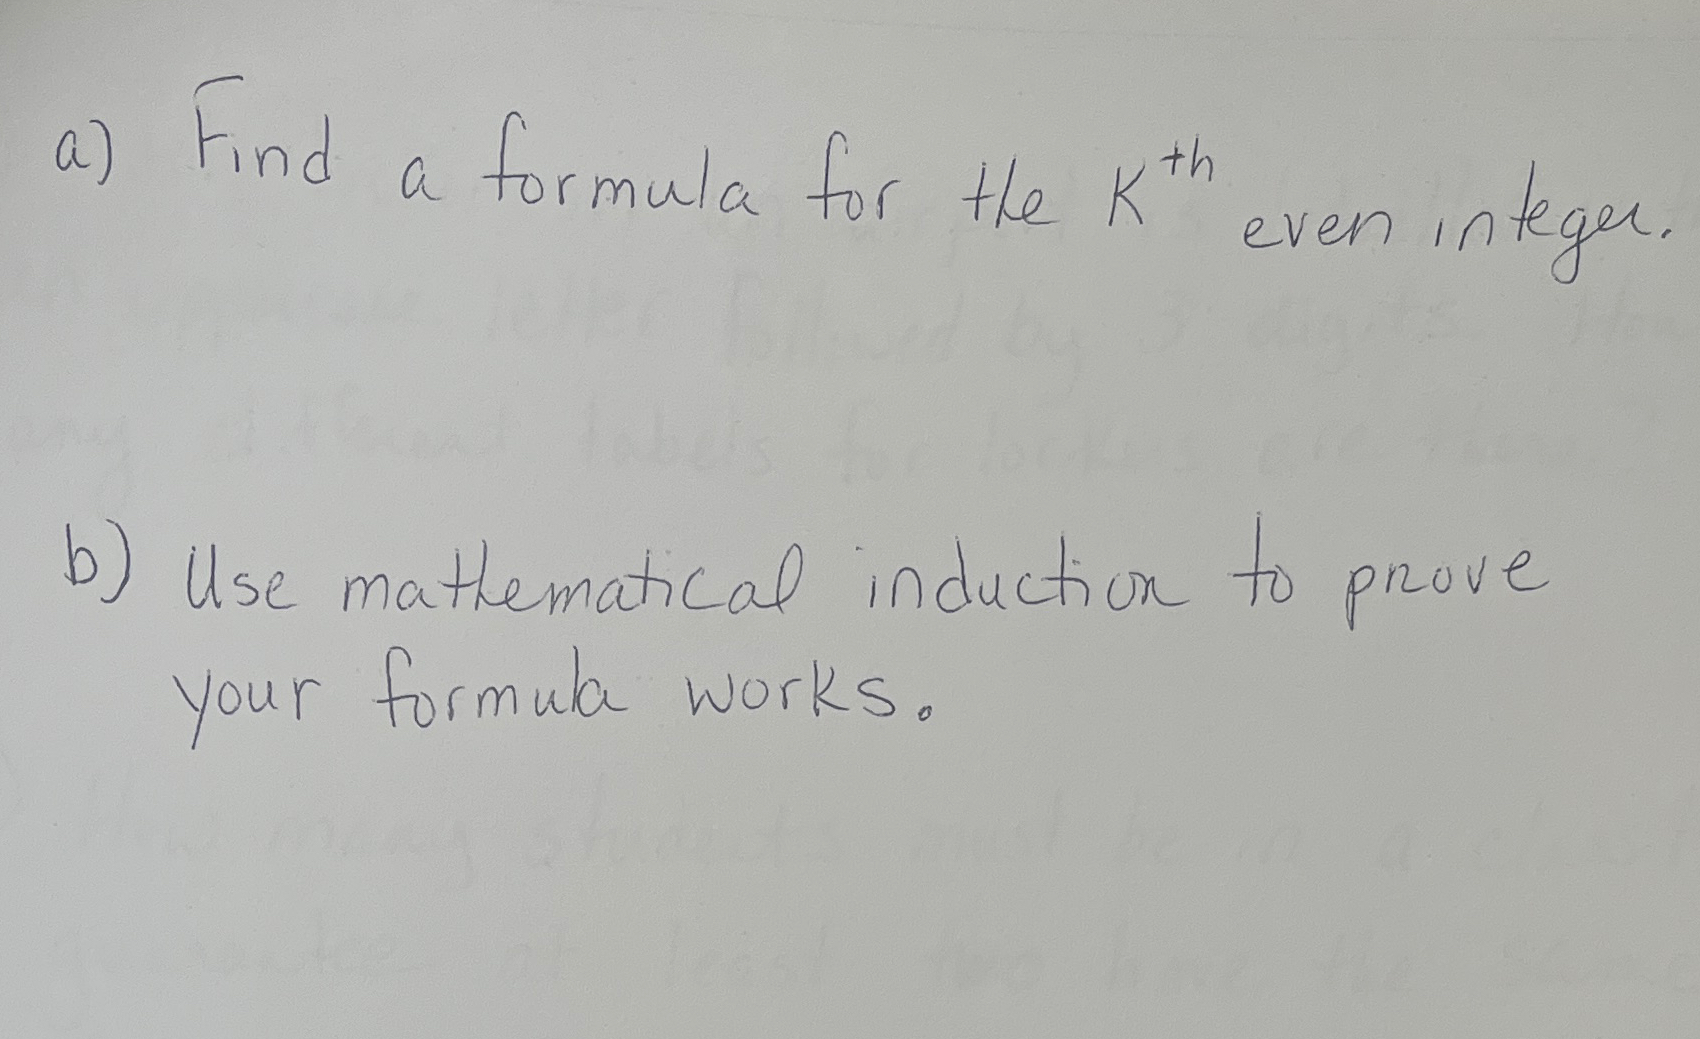 a) Find a formula for the Kth even integer.
b) Use mathematical induction to prove
your formula works.